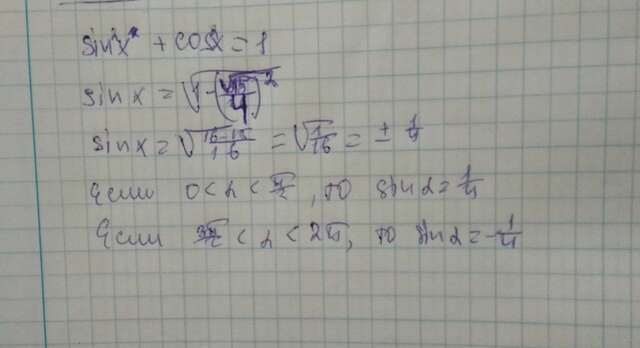 sin²x + cos²x = 1
sin x = √(1 - (√15/4)²)
sin x = √((16-15)/16) = √(1/16) = ± 1/4
Если 0 < α < π/2, то sin α = 1/4
Если 3π/2 < α < 2π, то sin α = -1/4